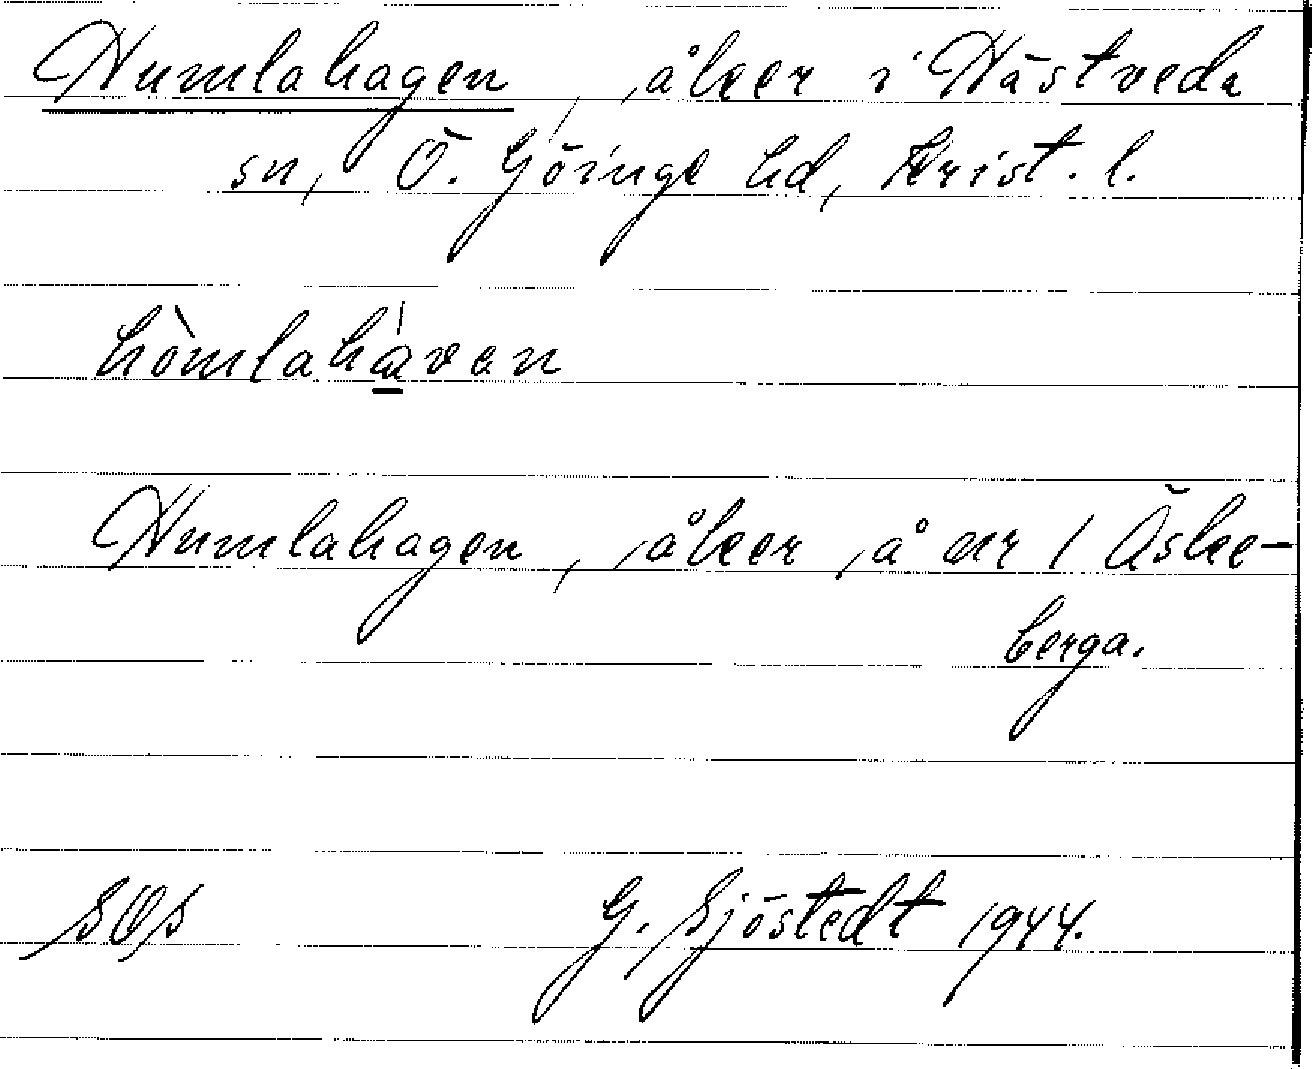 Humlahagen, åker i Hästveda
sn, Ö. Göinge hd, Krist. l.
hòmlahávan
Humlahagen, åker å nr 1 Äske-
berga.
SOS G. Sjöstedt 1944.